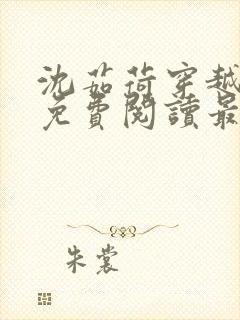 沈茹荷穿越
免費閱讀最
朱裳